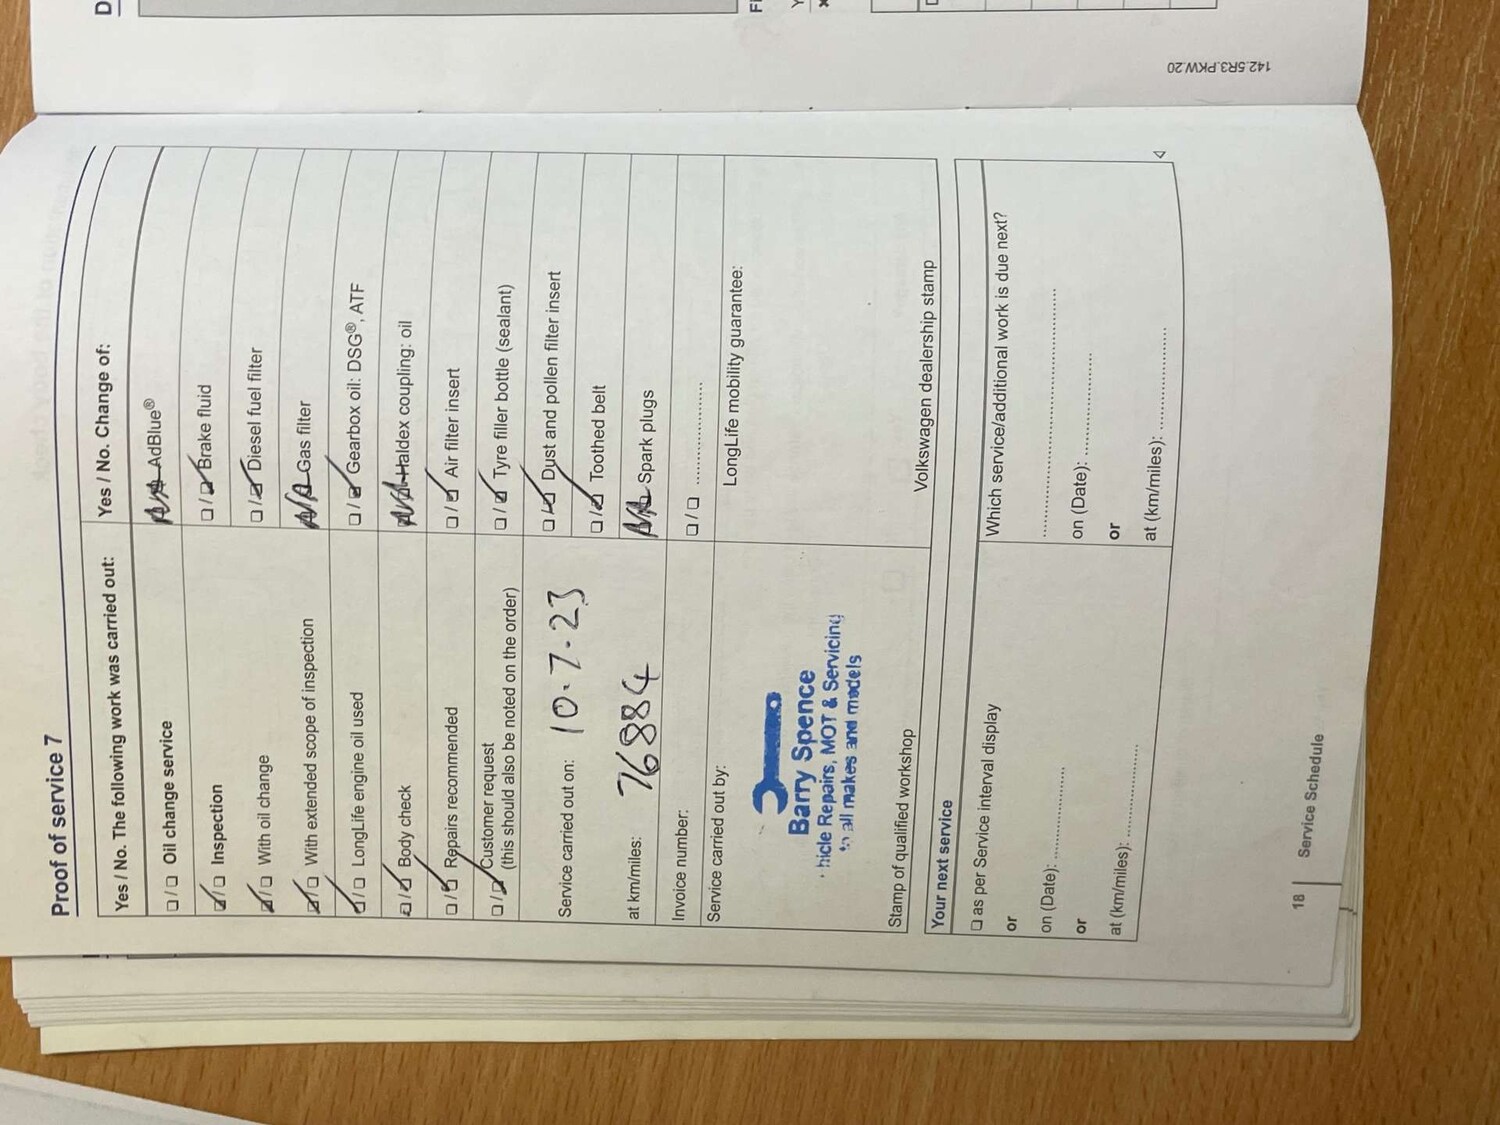 Proof of service 7
Yes / No. The following work was carried out:
☐/☐ Oil change service
☑/☐ Inspection
☑/☐ With oil change
☑/☐ With extended scope of inspection
☑/☐ LongLife engine oil used
☐/☑ Body check
☐/☑ Repairs recommended
☐/☑ Customer request
(this should also be noted on the order)
Service carried out on: 10.7.23
at km/miles: 76884
Invoice number:
Service carried out by:
Barry Spence
hicle Repairs, MOT & Servicing
to all makes and models
Stamp of qualified workshop
Yes / No. Change of:
N/A AdBlue®
☐/☑ Brake fluid
☐/☑ Diesel fuel filter
N/A Gas filter
☐/☑ Gearbox oil: DSG®, ATF
N/A Haldex coupling: oil
☐/☑ Air filter insert
☐/☑ Tyre filler bottle (sealant)
☐/☑ Dust and pollen filter insert
☐/☑ Toothed belt
N/A Spark plugs
☐/☐ ....................
LongLife mobility guarantee:
Volkswagen dealership stamp
Your next service
☐ as per Service interval display
or
on (Date): ....................
or
at (km/miles): ....................
Which service/additional work is due next?
........................................
on (Date): ....................
or
at (km/miles): ....................
18 | Service Schedule
142.5R3.PKW.20